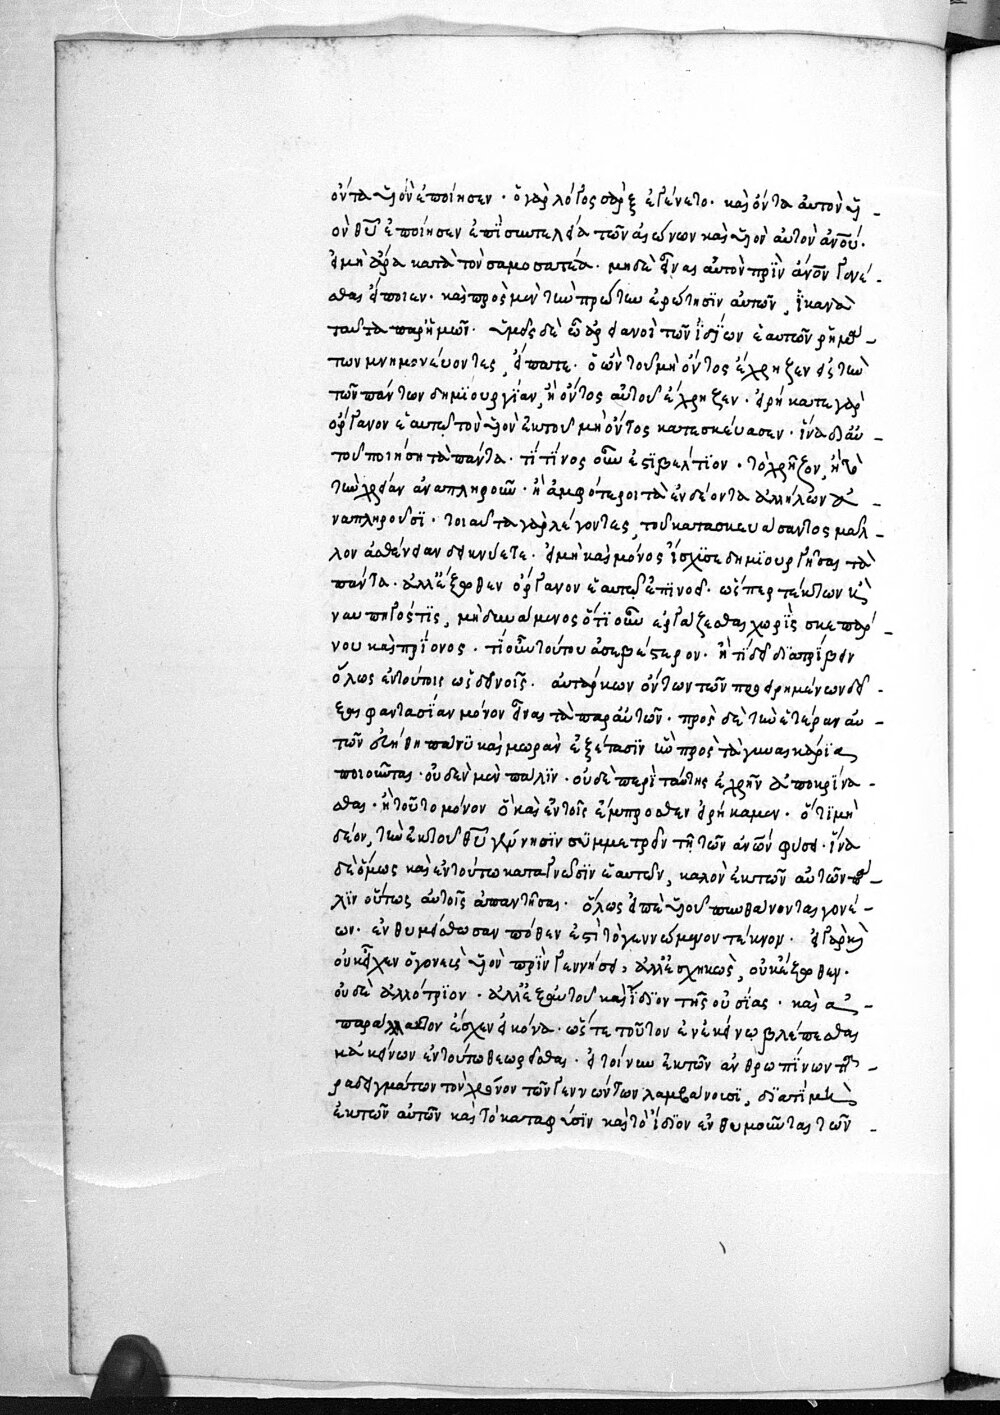 ὄντα υἱὸν ἐποίησεν · ὁ γὰρ λόγος σὰρξ ἐγένετο · καὶ ὄντα αὐτὸν υἱ-
ὸν θυ ἐποίησεν ἐπὶ συντελεία τῶν αἰώνων καὶ υἱὸν αὐτὸν ανου ·
εἰ μὴ ἄρα κατὰ τὸν σαμοσατέα · μηδὲ εἶναι αὐτὸν πρὶν ανον γενέ-
σθαι εἴποιεν · καὶ πρὸς μὲν τὴν πρώτην ἐρώτησιν αὐτῶν, ἱκανὰ
ταῦτα παρ' ἡμῶν · ὑμεῖς δὲ ὦ ἀρειανοὶ τῶν ἰδίων ἑαυτῶν ῥημά-
των μνημονεύοντες, εἴπατε · ὁ ὢν τοῦ μὴ ὄντος ἔχρηζεν εἰς τὴν
τῶν πάντων δημιουργίαν, ἢ ὄντος αὐτοῦ ἔχρηζεν · εἰρήκατε γὰρ
ὄργανον ἑαυτῷ τὸν υἱὸν ἐκ τοῦ μὴ ὄντος κατεσκεύασεν · ἵνα δι' αὐ-
τοῦ ποιήση τὰ πάντα · τί τίνος οὖν ἐστι βέλτιον · τὸ χρῆζον, ἢ τὸ
τὴν χρείαν ἀναπληροῦν · ἢ ἀμφότεροι τὰ ἐνδέοντα ἀλλήλων ἀ-
ναπληροῦσι · τοιαῦτα γὰρ λέγοντες, τοῦ κατασκευάσαντος μᾶλ-
λον ἀσθένειαν δείκνυετε · εἰ μὴ καὶ μόνος ἴσχυσε δημιουργῆσαι τὰ
πάντα · ἀλλ' ἔξωθεν ὄργανον ἑαυτῷ ἐπινοεῖ · ὥσπερ τέκτων ἢ
ναυπηγός τις, μὴ δυνάμενος ὅτι οὖν ἐργάζεσθαι χωρὶς σκεπάρ-
νου καὶ πρίονος · τί οὖν τούτου ἀσεβέστερον · ἢ τί δεῖ διατρίβειν
ὅλως ἐν τούτοις ὡς δεινοῖς · αὐτάρκων ὄντων τῶν προειρημένων δεῖ-
ξαι φαντασίαν μόνον εἶναι τὰ παρ' αὐτῶν · πρὸς δὲ τὴν ἑτέραν αὐ-
τῶν εὐήθη πάνυ καὶ μωρὰν ἐξέτασιν ἣν πρὸς τὰ γυναικάρια
ποιοῦνται · οὐδὲν μὲν πάλιν · οὐδὲ περὶ ταύτης ἐχρῆν ἀποκρίνα-
σθαι · ἢ τοῦτο μόνον ὃ καὶ ἐν τοῖς ἔμπροσθεν εἰρήκαμεν · ὅτι μὴ
δέον, τὴν ἐκ τοῦ θυ γέννησιν συμμετρεῖν τῆ τῶν ανων φύσει · ἵνα
δὲ ὅμως καὶ ἐν τούτω καταγνῶσιν ἑαυτῶν, καλὸν ἐκ τῶν αὐτῶν πά-
λιν οὕτως αὐτοῖς ἀπαντῆσαι · ὅλως εἰ περὶ υἱοῦ πυνθάνονται γονέ-
ων · ἐνθυμείσθωσαν πόθεν ἐστὶ τὸ γεννώμενον τέκνον · εἰ γὰρ καὶ
οὐκ εἶχεν ὁ γονεὺς υἱὸν πρὶν γεννήσει, ἀλλ' ἐσχηκὼς, οὐκ ἔξωθεν ·
οὐδὲ ἀλλότριον · ἀλλ' ἐξ ἑαυτοῦ καὶ ἴδιον τῆς οὐσίας · καὶ ἀ-
παράλλακτον ἔσχεν εἰκόνα · ὥστε τοῦτον ἐν ἐκείνω βλέπεσθαι
κἀκεῖνον ἐν τούτω θεωρεῖσθαι · εἰ τοίνυν ἐκ τῶν ἀνθρωπίνων πα-
ραδειγμάτων τὸν χρόνον τῶν γεννώντων λαμβάνουσι, διὰ τί μὴ
ἐκ τῶν αὐτῶν καὶ τὸ κατὰ φύσιν καὶ τὸ ἴδιον ἐνθυμοῦνται τῶν -